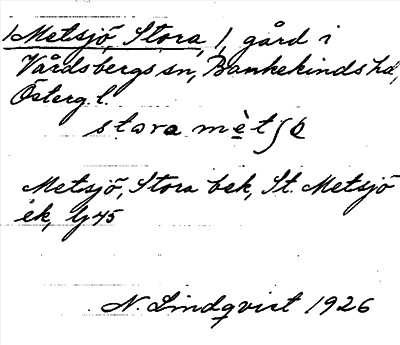 /Metsjö, Stora, /, gård i
Vårdsbergs sn, Bankekinds hd,
Östergl.
stora mètʃö
Metsjö, Stora bek, St. Metsjö
ek, Gj 45
N. Lindqvist 1926